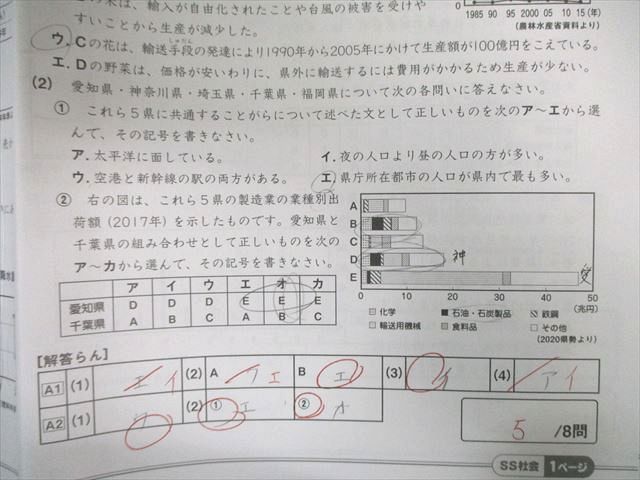 の米は、輸入が自由化されたことや台風の被害を受けや
すいことから生産が減少した。
ウ.Cの花は、輸送手段の発達により1990年から2005年にかけて生産額が100億円をこえている。
エ.Dの野菜は、価格が安いわりに、県外に輸送するには費用がかかるため生産が少ない。
1985 90 95 2000 05 10 15(年)
(農林水産省資料より)
(2) 愛知県・神奈川県・埼玉県・千葉県・福岡県について次の各問いに答えなさい。
① これら5県に共通することがらについて述べた文として正しいものを次のア〜エから選
んで、その記号を書きなさい。
ア.太平洋に面している。
イ.夜の人口より昼の人口の方が多い。
ウ.空港と新幹線の駅の両方がある。
エ.県庁所在都市の人口が県内で最も多い。
② 右の図は、これら5県の製造業の業種別出
荷額(2017年)を示したものです。愛知県と
千葉県の組み合わせとして正しいものを次の
ア〜カから選んで、その記号を書きなさい。
ア イ ウ エ オ カ
愛知県 D D D E E E
千葉県 A B C A B C
A
B
C
D 神
E 愛
0 10 20 30 40 50
(兆円)
化学 石油・石炭製品 鉄鋼
輸送用機械 食料品 その他
(2020県勢より)
[解答らん]
A1 (1) エ イ (2) A イ エ B エ (3) イ (4) ア イ
A2 (1) ウ (2) ① エ ② オ
5 /8問
SS社会 1ページ